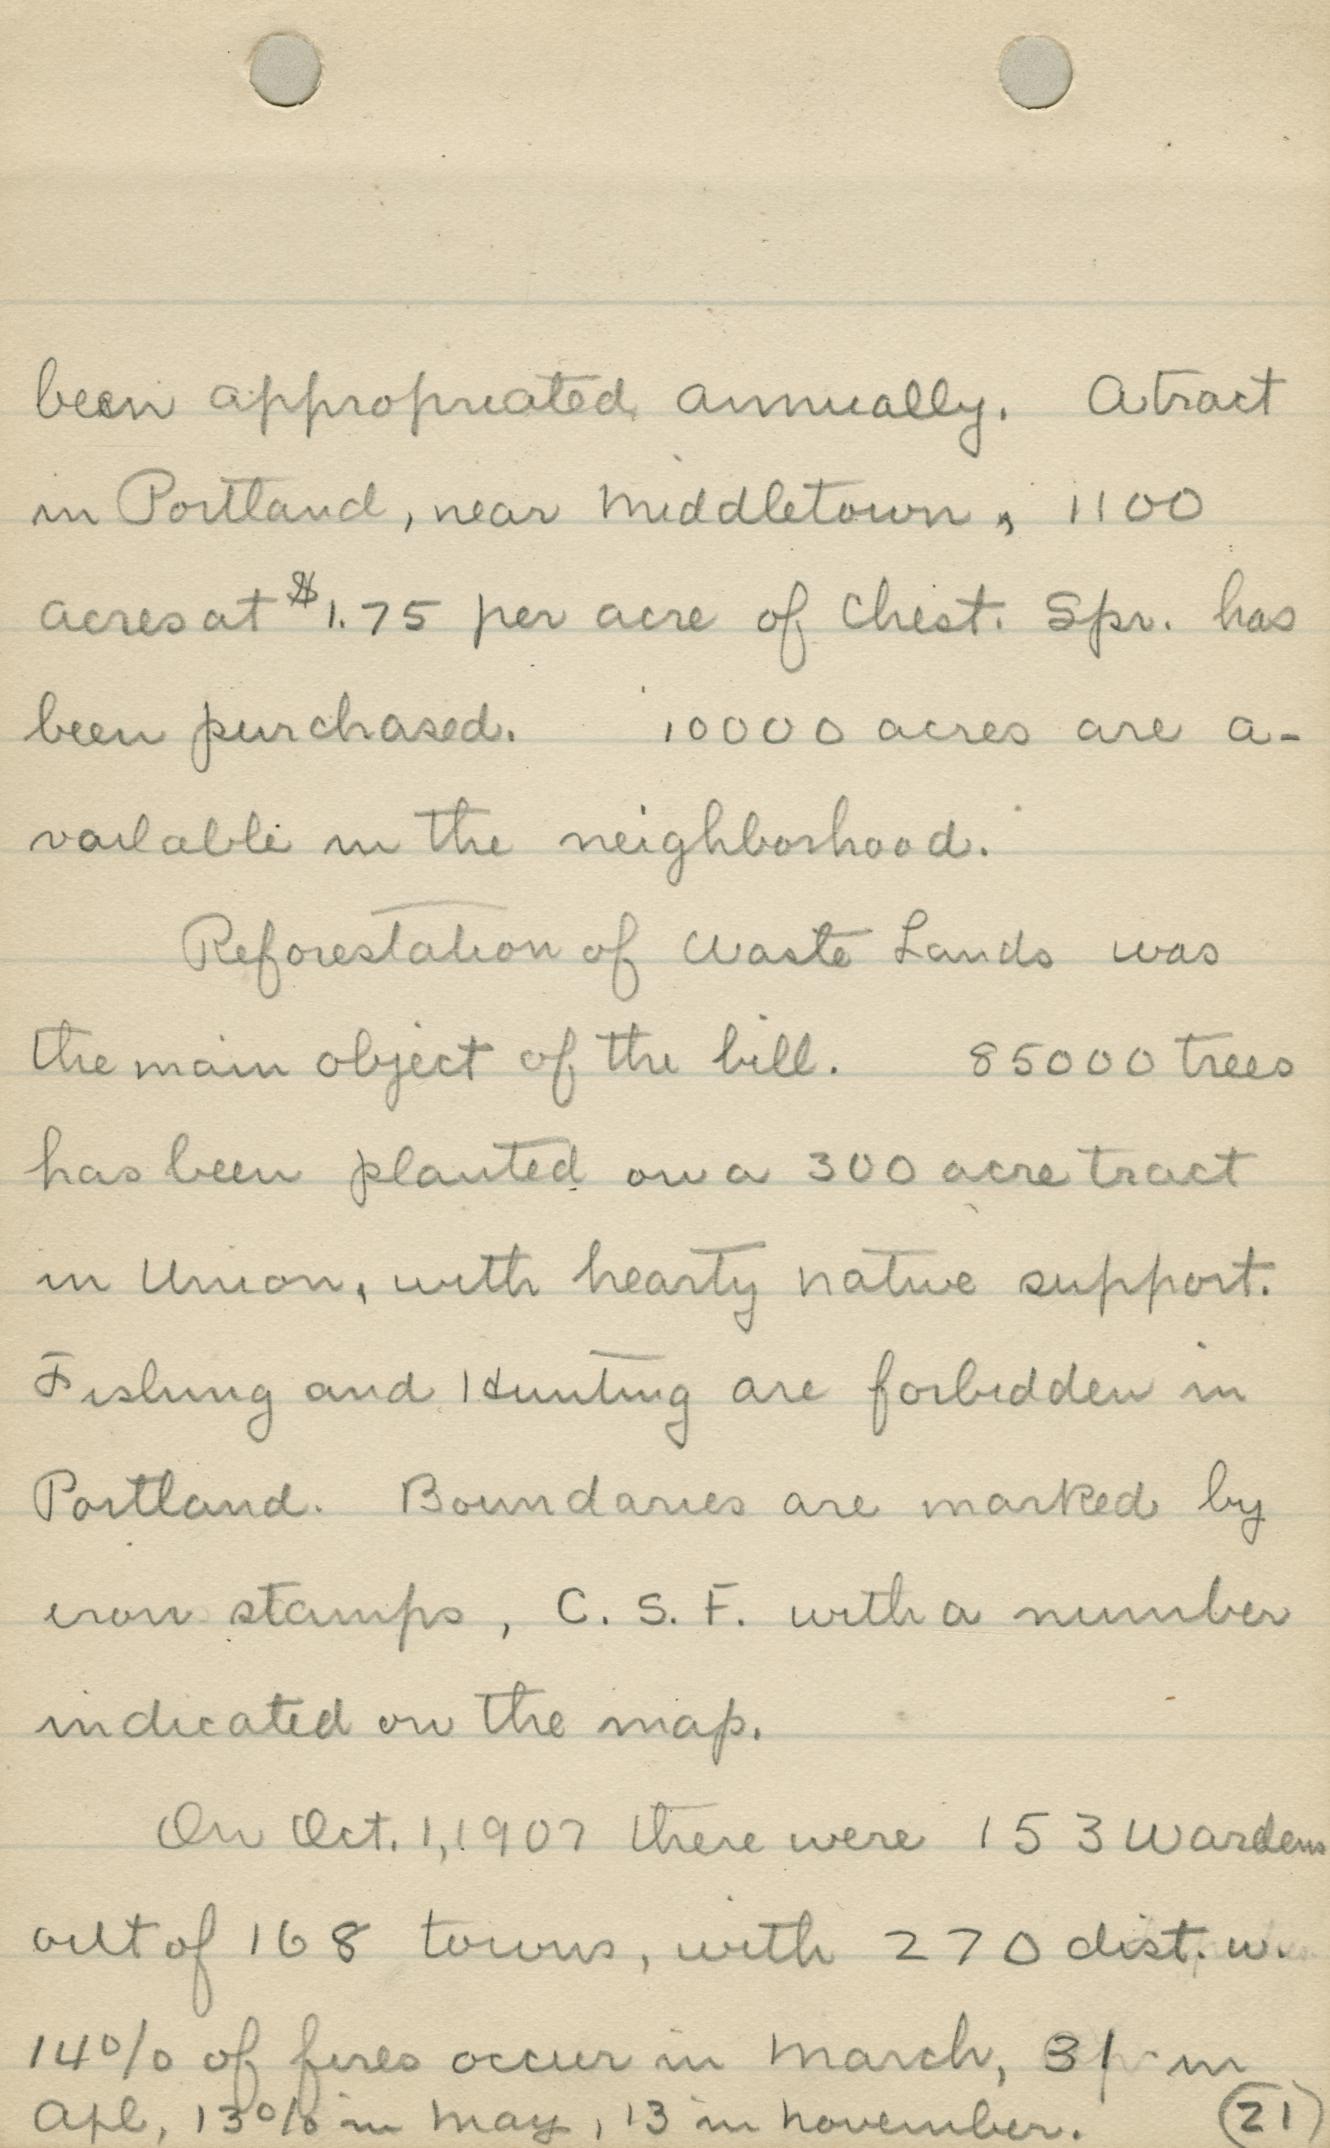 been appropriated annually. A tract
in Portland, near Middletown, 1100
acres at $1.75 per acre of Chest. Spr. has
been purchased. 10000 acres are a-
vailable in the neighborhood.
Reforestation of Waste Lands was
the main object of the bill. 85000 trees
has been planted on a 300 acre tract
in Union, with hearty native support.
Fishing and Hunting are forbidden in
Portland. Boundaries are marked by
iron stamps, C. S. F. with a number
indicated on the map.
On Oct. 1, 1907 there were 153 Wardens
out of 168 towns, with 270 dist. w.
14% of fires occur in March, 31 in
Apl, 13% in May, 13 in November. (21)